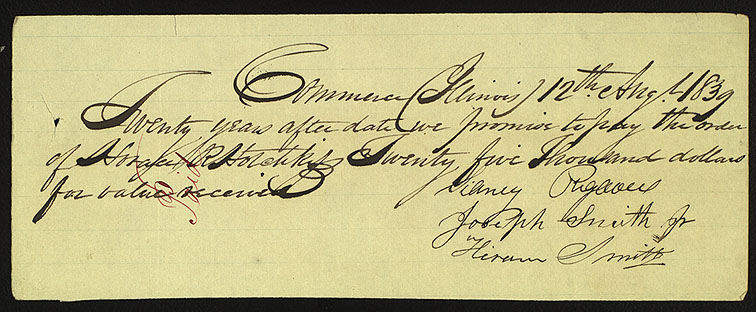 Commerce (Illinois) 12th Augt 1839
Twenty years after date we promise to pay the order
of Horace R Hotchkiss Twenty five Thousand dollars
for value received
Sidney Rigdon
Joseph Smith Jr
Hiram Smith
Paid